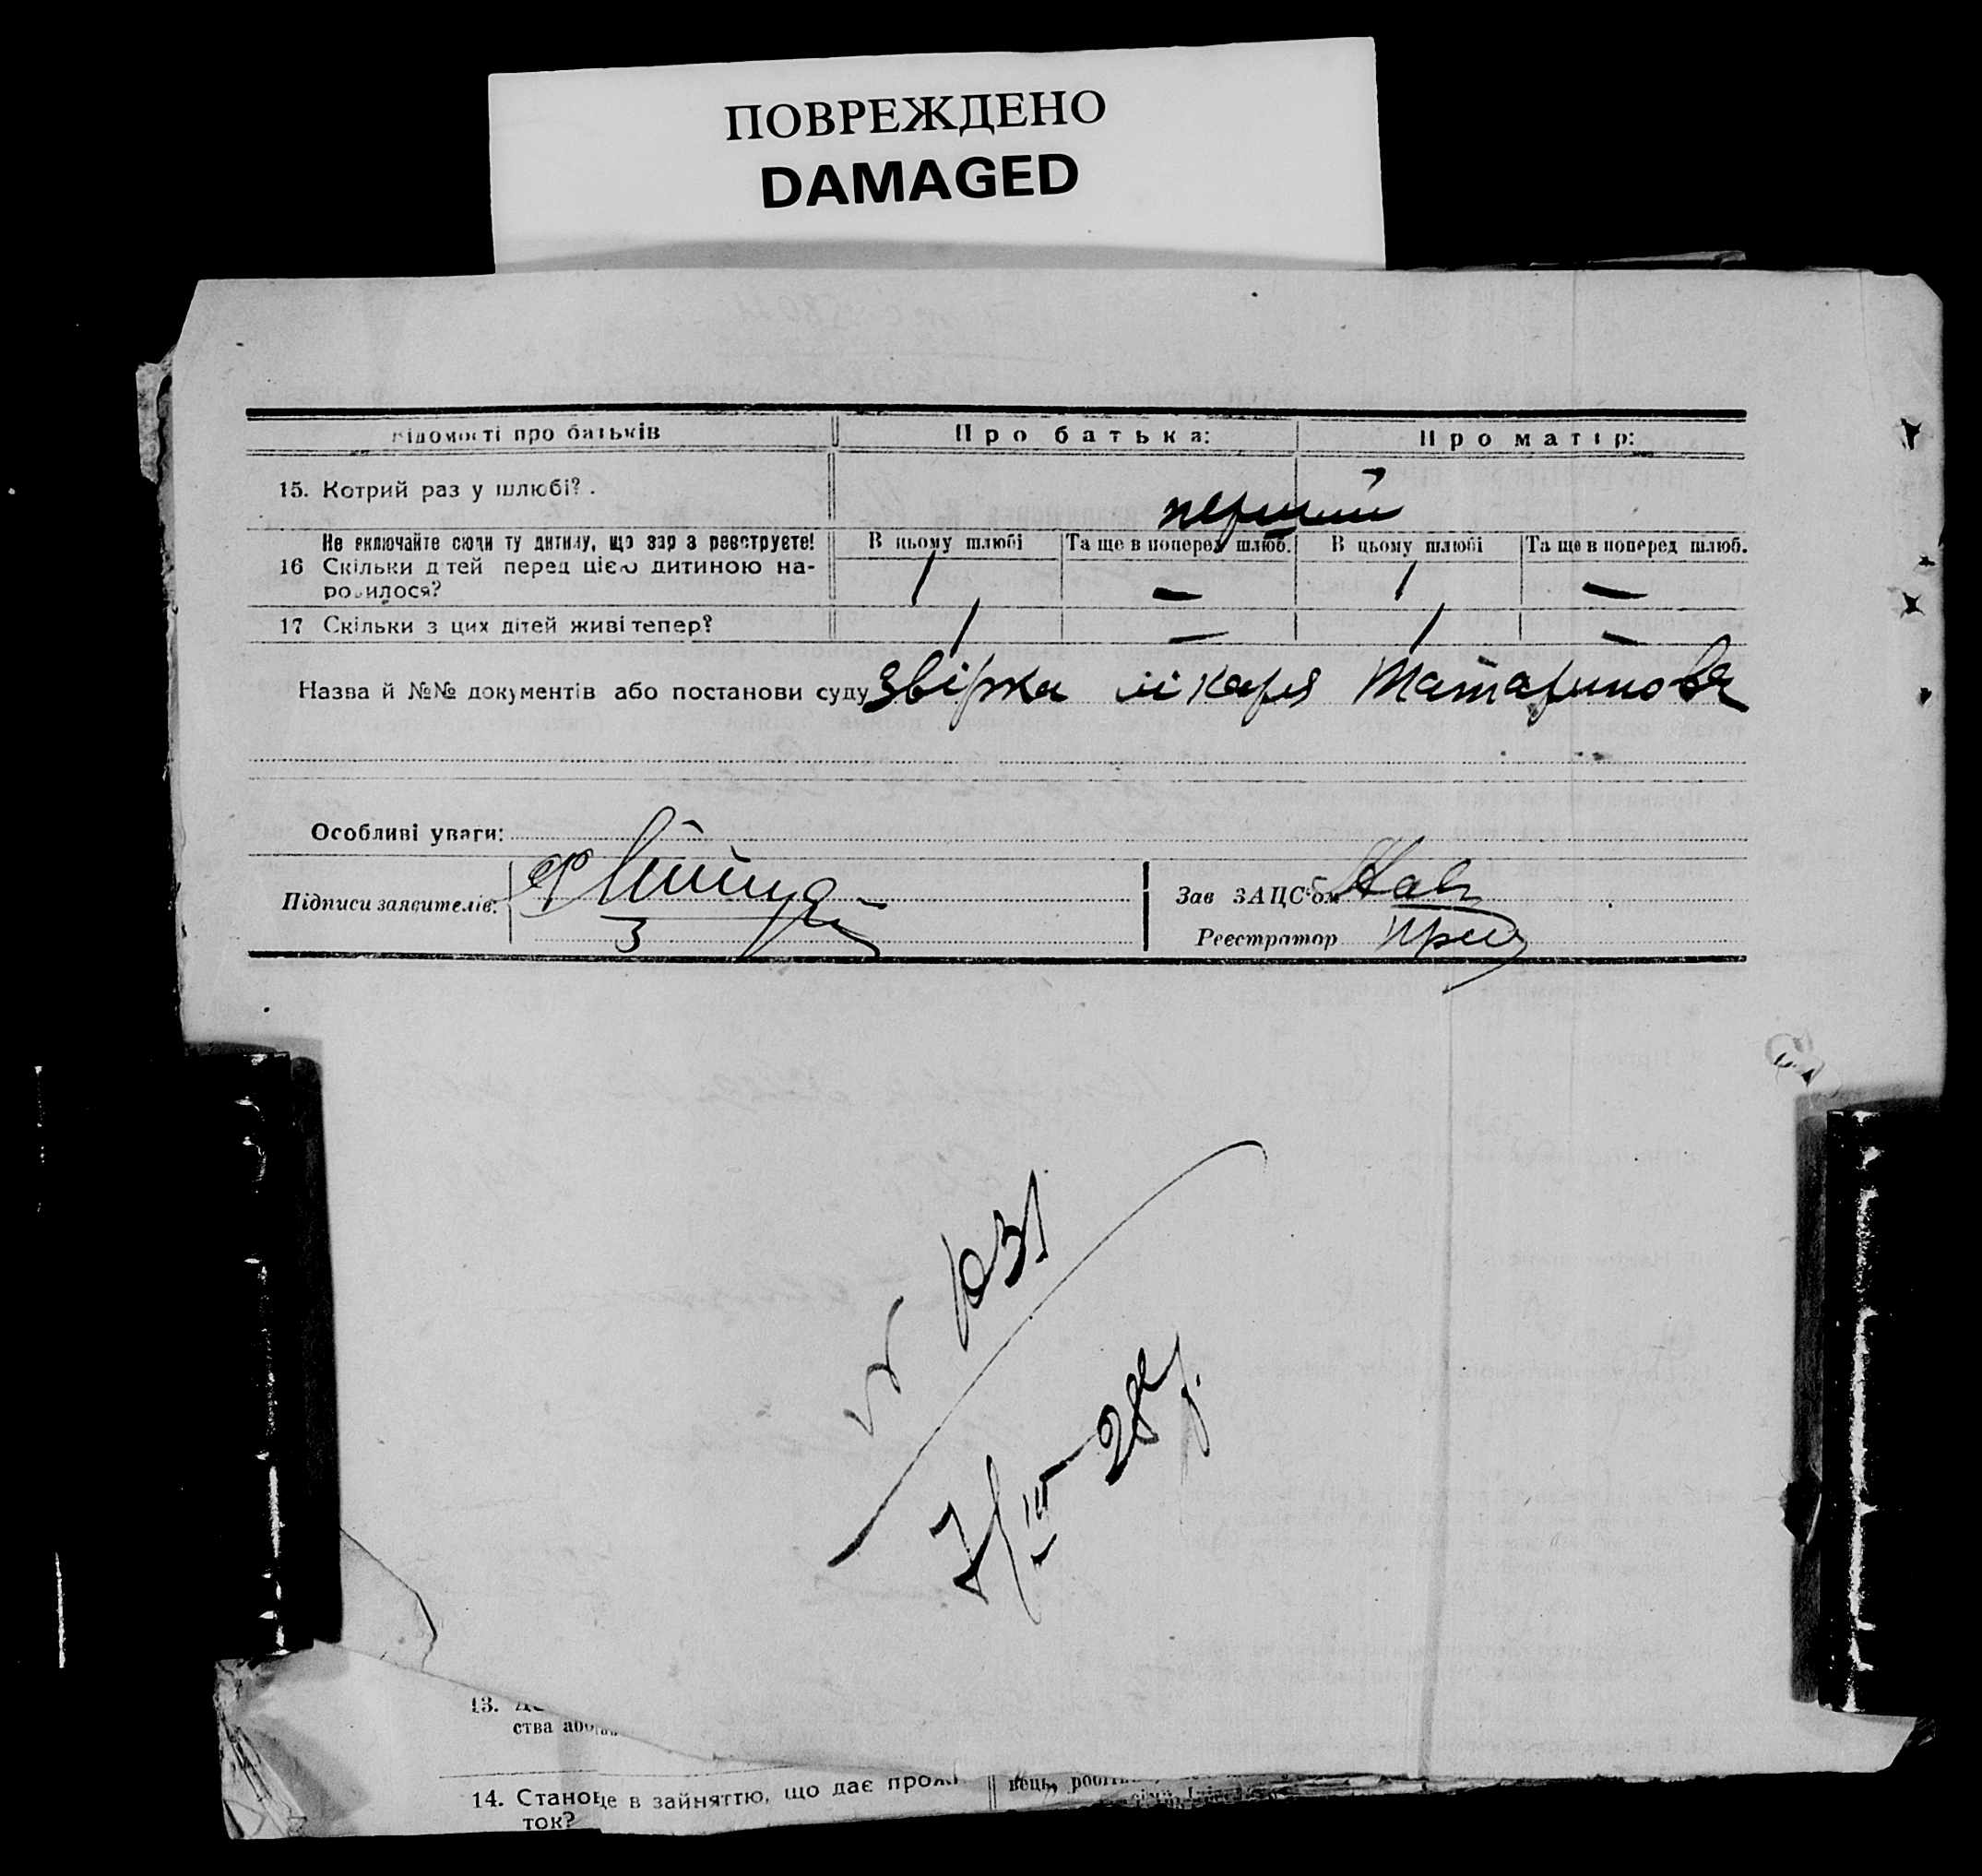 ПОВРЕЖДЕНО
DAMAGED
Відомості про батьків Про батька: Про матір:
15. Котрий раз у шлюбі?.
перший
Не включайте сюди ту дитину, що зараз реєструєте! В цьому шлюбі Та ще в поперед шлюб. В цьому шлюбі Та ще в поперед шлюб.
16 Скільки дітей перед цією дитиною на-
родилося? 1 — 1 —
17 Скільки з цих дітей живі тепер? 1 — 1 —
Назва й №№ документів або постанови суду звірка лікаря Татаринова
Особливі уваги:
Підписи заявителів:
Зав ЗАЦС'ом
Реєстратор
№ 1031
7/IV-28р.
13.
ства або
14. Становище в зайняттю, що дає прожи
ток?
вець,